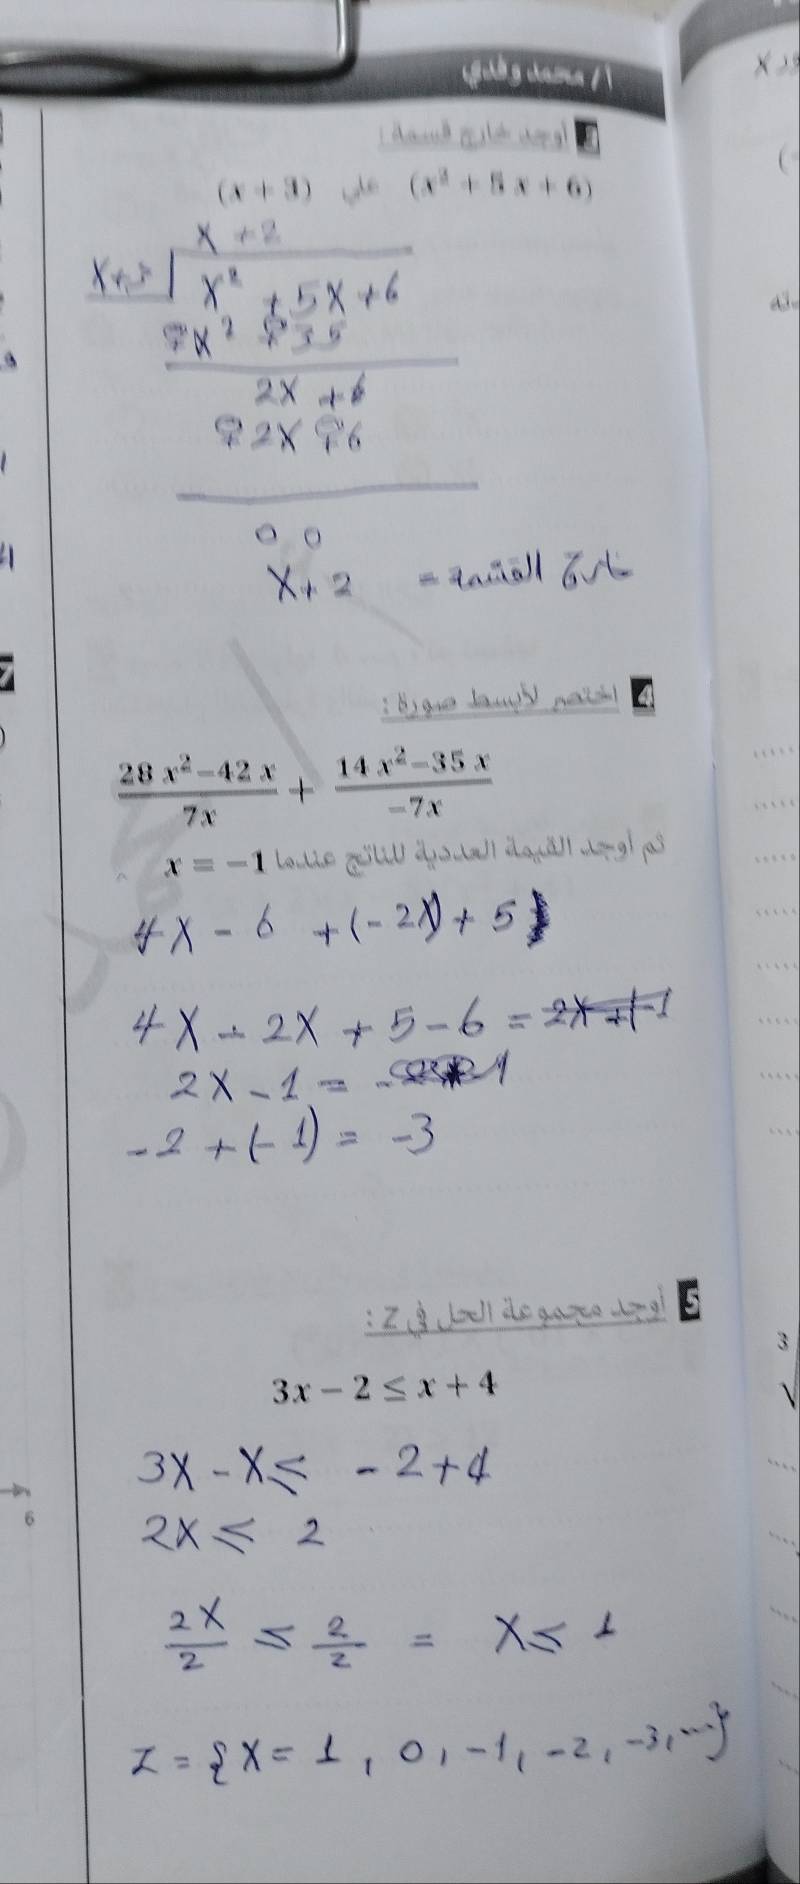 أ / محمد وفدي
3 أوجد خارج قسمة :
(x² + 5x + 6) على (x + 3)
x + 2
x+3
x² + 5x + 6
x² 35
2x + 6
2x 6
0 0
خارج القسمة = x + 2
4 اختصر لأبسط صورة :
28x² – 42x / 7x + 14x² – 35x / –7x
ثم أوجد القيمة العددية للناتج عندما x = –1
4x - 6 + (-2x) + 5
4x - 2x + 5 - 6 = 2x + -1
2x - 1 =
-2 + (-1) = -3
5 أوجد مجموعة الحل في Z :
3x – 2 ≤ x + 4
3x - x ≤ - 2 + 4
2x ≤ 2
2x/2 ≤ 2/2 = x ≤ 1
Z = {x = 1, 0, -1, -2, -3, ...}
6
7
3